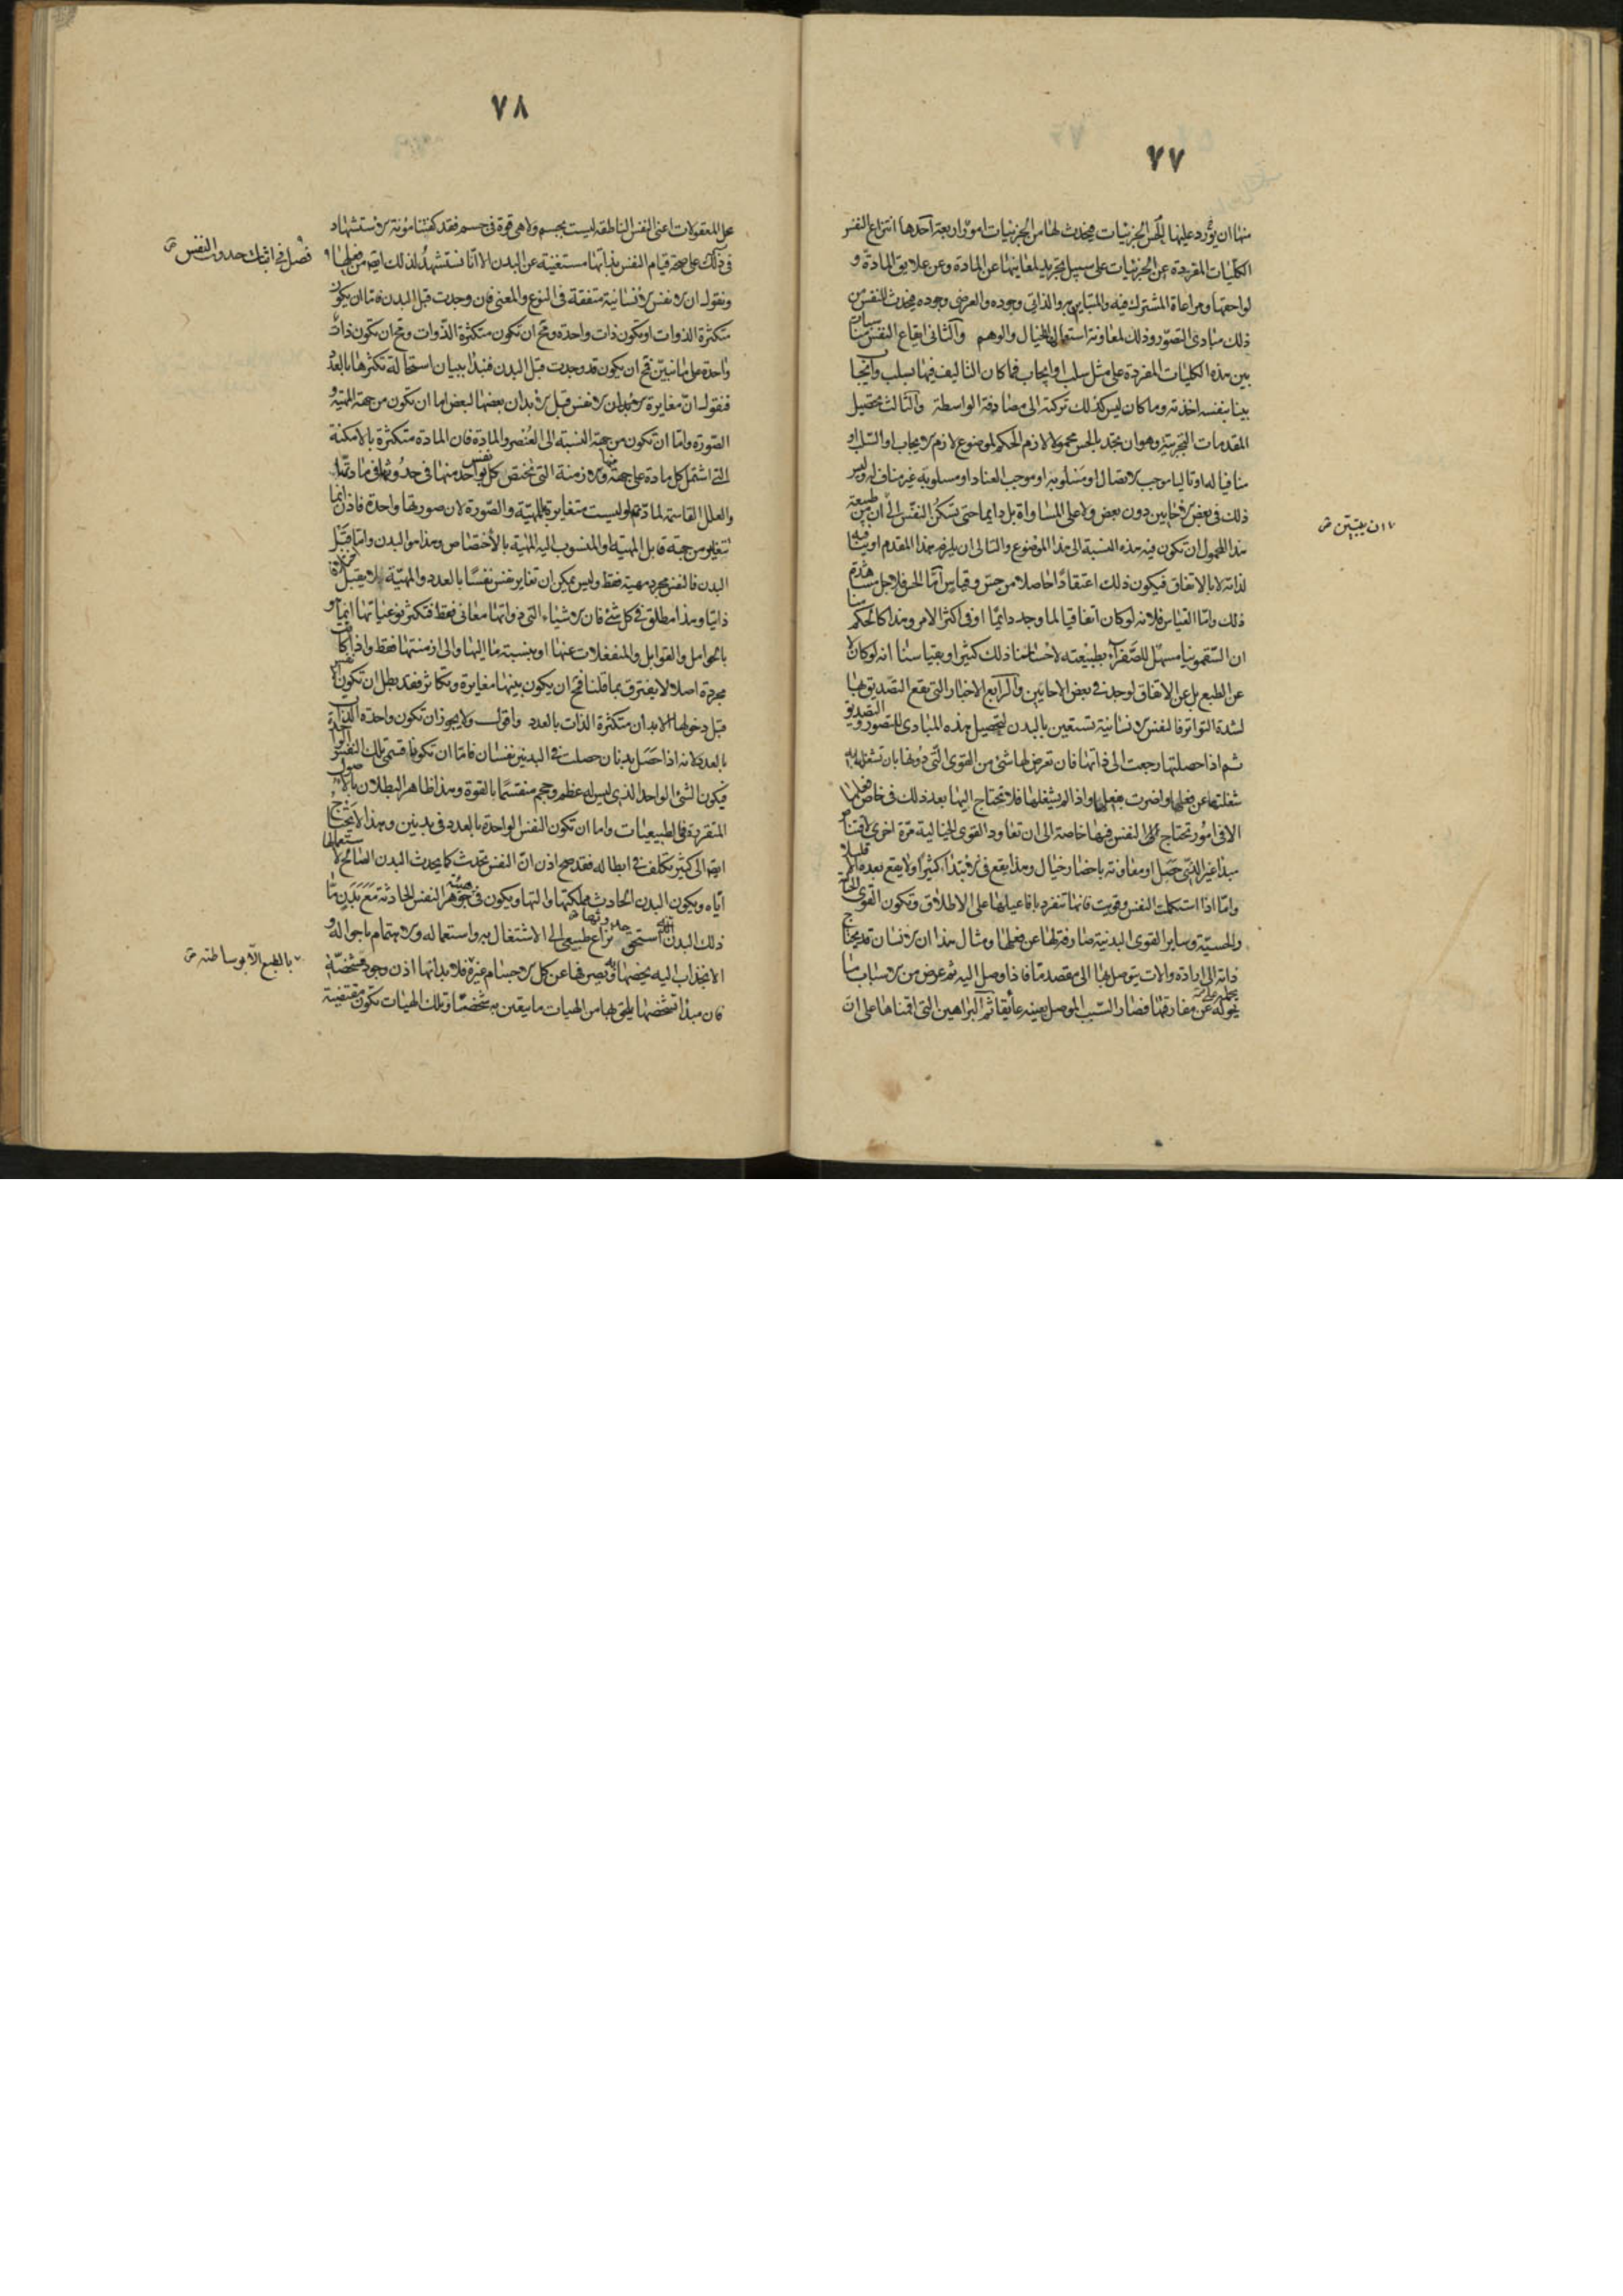 ٧٧
منها ان يورد عليها الحس الجزئيات فيحدث لها من الجزئيات امور اربعة احدها انتزاع النفس
الكليات المفردة عن الجزئيات على سبيل تجريد لمعانيها عن المادة وعن علايق المادة و
لواحقها ومراعاة المشترك فيه والمتباين به والذاتي وجوده والعرضي وجوده فيحدث للنفس من
ذلك مبادى التصور وذلك لمعاونة استعمالها للخيال والوهم والثانى ايقاع النفس مناسبات
بين هذه الكليات المفردة على مثل سلب او ايجاب فما كان التاليف فيها بسلب وايجاب
بينا بنفسه اخذته وما كان ليس كذلك تركته الى مصادفة الواسطة والثالث تحصيل
المقدمات التجربية وهو ان نجد بالحس محمولا لازم الحكم لموضوع لازم الايجاب او السلب او
منافيا له او تاليا موجب الاتصال او مسلوبه او موجب العناد او مسلوبه غير مناف له وليس
ذلك فى بعض الاحايين دون بعض ولا على المساواة بل دايما حتى تسكن النفس الى ان من طبيعة
هذا المحمول ان تكون فيه هذه النسبة الى هذا الموضوع والتالى ان يلزم هذا المقدم او ينافيه
لذاته لا بالاتفاق فيكون ذلك اعتقادا حاصلا من حس وقياس اما الحس فلاجل مشاهدة
ذلك واما القياس فلانه لو كان اتفاقيا لما وجد دايما او فى اكثر الامر وهذا كالحكم منا
ان السقمونيا مسهل للصفراء بطبيعته لاحساسنا ذلك كثيرا وبقياسنا انه لو كان لا
عن الطبع بل عن الاتفاق لوجد فى بعض الاحايين والرابع الاخبار التى يقع التصديق بها
لشدة التواتر فالنفس الانسانية تستعين بالبدن لتحصيل هذه المبادى للتصور والتصديق
ثم اذا حصلتها رجعت الى ذاتها فان تعرض لها شئ من القوى التى دونها بان تشغله به
شغلتها عن فعلها واضرت بفعلها واذا لم يشغلها فلا تحتاج اليها بعد ذلك فى خاص فعلها
الا فى امور تحتاج النفس فيها خاصة الى ان تعاود القوى الخيالية مرة اخرى لاقتناص
مبدا غير الذى حصل او معاونة باحضار خيال وهذا يقع فى الابتداء كثيرا ولا يقع بعده الا قليلا
واما اذا استكملت النفس وقويت فانها تنفرد بافاعيلها على الاطلاق وتكون القوى الخيالية
والحسية وساير القوى البدنية صارفة لها عن فعلها ومثال هذا ان الانسان قد يحتاج
ذاته الى ارادة والات يتوصل بها الى مقصد ما فاذا وصل اليه ثم عرض من الاسباب ما
يحوله عن مفارقتها فصار السبب الموصل بعينه عايقا ثم البراهين التى اقمناها على ان
ان يتبين
٧٨
محل المعقولات اعنى النفس الناطقة ليست بجسم ولا هى قوة فى جسم فقد كفتنا مؤنة الاستشهاد
فى ذلك على صحة قيام النفس بذاتها مستغنية عن البدن الا انا نستشهد لذلك ايضا من فعلها
ونقول ان الانفس الانسانية متفقة فى النوع والمعنى فان وجدت قبل البدن فاما ان يكون
متكثرة الذوات او تكون ذات واحدة ومح ان تكون متكثرة الذوات ومح ان تكون ذات
واحدة على ما نبين فمح ان يكون قد وجدت قبل البدن فنبدا ببيان استحالة تكثرها بالعدد
فنقول ان مغايرة الانفس قبل الابدان بعضها لبعض اما ان تكون من جهة المهية و
الصورة واما ان تكون من جهة النسبة الى العنصر والمادة فان المادة متكثرة بالامكنة
التى اشتمل كل مادة على جهة منها والازمنة التى تختص كل نفس واحد منها فى حدوثها فى مادتها
والعلل القاسمة لمادتهم وليست متغايرة بالمهية والصورة لان صورتها واحدة فاذن انما
تتغاير من جهة قابل المهية او المنسوب اليه المهية بالاختصاص وهذا هو البدن واما قبل
البدن فالنفس مجرد مهية فقط وليس يمكن ان تغاير نفس نفسا بالعدد والمهية لا يقبل اختلافا
ذاتيا وهذا مطلق فى كل شئ فان الاشياء التى ذواتها معانى فقط فتكثر نوعياتها انما هو
بالحوامل والقوابل والمنفعلات عنها او بنسبة ما اليها والى ازمنتها فقط واذا كانت
مجردة اصلا لا يفترق بما قلنا فمح ان يكون بينها مغايرة وتكاثر فقد بطل ان تكون نفس
قبل دخولها الابدان متكثرة الذات بالعدد واقول ولا يجوز ان تكون واحدة الذات
بالعدد لانه اذا حصل بدنان حصلت فى البدنين نفسان فاما ان تكونا قسمى تلك النفس الواحدة
فيكون الشئ الواحد الذى ليس له عظم وحجم منقسما بالقوة وهذا ظاهر البطلان بالاصول
المتقررة فى الطبيعيات واما ان تكون النفس الواحدة بالعدد فى بدنين وهذا لا يحتاج
ايضا الى كثير تكلف فى ابطاله فقد صح اذن ان النفس تحدث كما يحدث البدن الصالح لاستعمالها
اياه ويكون البدن الحادث مملكتها والتها ويكون فى جوهر النفس الحادثة مع بدن ما
ذلك البدن استحق حدوثها نزاع طبيعى الى الاشتغال به واستعماله والاهتمام باحواله و
الانجذاب اليه يخصها ويصرفها عن كل الاجسام غيره فلا بد انها اذن وجود متشخصة
فان مبدا تشخصها يلحق بها من الهيات ما يتعين به شخصا وتلك الهيات تكون مقتضية
فصل فى اثبات حدوث النفس
بالطبع الا بوساطته